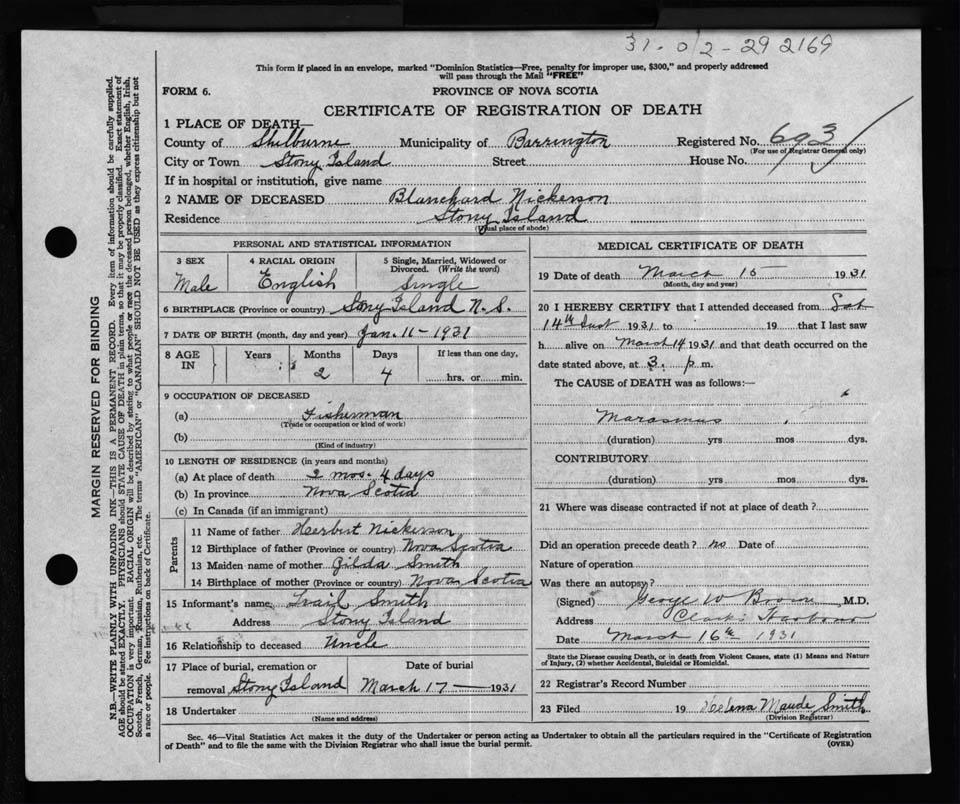 31-012-29 2169
This form if placed in an envelope, marked "Dominion Statistics—Free, penalty for improper use, $300," and properly addressed
will pass through the Mail "FREE"
FORM 6.
PROVINCE OF NOVA SCOTIA
CERTIFICATE OF REGISTRATION OF DEATH
1 PLACE OF DEATH—
County of Shelburne Municipality of Barrington Registered No. 693
(For use of Registrar General only)
City or Town Stony Island Street House No.
If in hospital or institution, give name
2 NAME OF DECEASED Blanchard Nickerson
Residence Stony Island
(Usual place of abode)
PERSONAL AND STATISTICAL INFORMATION
3 SEX 4 RACIAL ORIGIN 5 Single, Married, Widowed or
Divorced. (Write the word)
Male English Single
6 BIRTHPLACE (Province or country) Stony Island N.S.
7 DATE OF BIRTH (month, day and year) Jan. 11-1931
8 AGE Years Months Days If less than one day,
IN 2 4 hrs. or min.
9 OCCUPATION OF DECEASED
(a) Fisherman
(Trade or occupation or kind of work)
(b)
(Kind of industry)
10 LENGTH OF RESIDENCE (in years and months)
(a) At place of death 2 mos. 4 days
(b) In province Nova Scotia
(c) In Canada (if an immigrant)
Parents
11 Name of father Herbert Nickerson
12 Birthplace of father (Province or country) Nova Scotia
13 Maiden name of mother Gilda Smith
14 Birthplace of mother (Province or country) Nova Scotia
15 Informant's name Smith
Address Stony Island
16 Relationship to deceased Uncle
17 Place of burial, cremation or Date of burial
removal Stony Island March 17 — 1931
18 Undertaker
(Name and address)
MEDICAL CERTIFICATE OF DEATH
19 Date of death March 15 1931
(Month, day and year)
20 I HEREBY CERTIFY that I attended deceased from Sat
14th Inst 1931 to 19 that I last saw
h alive on March 14 1931 and that death occurred on the
date stated above, at 3. p m.
The CAUSE of DEATH was as follows:—
Marasmus
(duration) yrs mos dys.
CONTRIBUTORY
(duration) yrs mos dys.
21 Where was disease contracted if not at place of death?
Did an operation precede death? no Date of
Nature of operation
Was there an autopsy?
(Signed) George W Brown M.D.
Address Clarks Harbour
Date March 16th 1931
State the Disease causing Death, or in death from Violent Causes, state (1) Means and Nature
of Injury, (2) whether Accidental, Suicidal or Homicidal.
22 Registrar's Record Number
23 Filed 19 Helena Maude Smith
(Division Registrar)
Sec. 46—Vital Statistics Act makes it the duty of the Undertaker or person acting as Undertaker to obtain all the particulars required in the "Certificate of Registration
of Death" and to file the same with the Division Registrar who shall issue the burial permit.
(OVER)
MARGIN RESERVED FOR BINDING
N.B.—WRITE PLAINLY WITH UNFADING INK—THIS IS A PERMANENT RECORD. Every item of information should be carefully supplied.
AGE should be stated EXACTLY. PHYSICIANS should STATE CAUSE OF DEATH in plain terms, so that it may be properly classified. Exact statement of
OCCUPATION is very important. RACIAL ORIGIN will be described by stating to what people or race the deceased person belonged, whether English, Irish,
Scotch, French, German, Russian, Ruthenian, etc. The terms "AMERICAN" or "CANADIAN" SHOULD NOT BE USED as they express citizenship but not
a race or people. See instructions on back of Certificate.